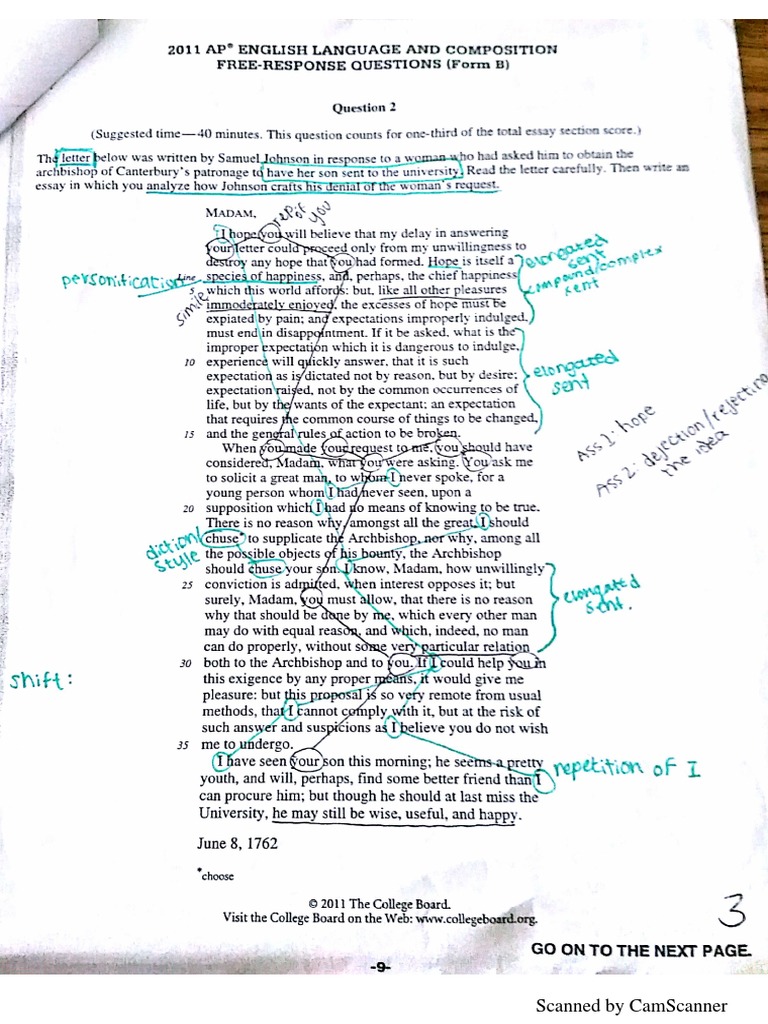 2011 AP® ENGLISH LANGUAGE AND COMPOSITION
FREE-RESPONSE QUESTIONS (Form B)
Question 2
(Suggested time—40 minutes. This question counts for one-third of the total essay section score.)
The letter below was written by Samuel Johnson in response to a woman who had asked him to obtain the
archbishop of Canterbury's patronage to have her son sent to the university. Read the letter carefully. Then write an
essay in which you analyze how Johnson crafts his denial of the woman's request.
MADAM,
rep of you
I hope you will believe that my delay in answering
your letter could proceed only from my unwillingness to
destroy any hope that you had formed. Hope is itself a
Line species of happiness, and, perhaps, the chief happiness
5 which this world affords: but, like all other pleasures
immoderately enjoyed, the excesses of hope must be
expiated by pain; and expectations improperly indulged,
must end in disappointment. If it be asked, what is the
improper expectation which it is dangerous to indulge,
10 experience will quickly answer, that it is such
expectation as is dictated not by reason, but by desire;
expectation raised, not by the common occurrences of
life, but by the wants of the expectant; an expectation
that requires the common course of things to be changed,
15 and the general rules of action to be broken.
When you made your request to me, you should have
considered, Madam, what you were asking. You ask me
to solicit a great man, to whom I never spoke, for a
young person whom I had never seen, upon a
20 supposition which I had no means of knowing to be true.
There is no reason why, amongst all the great, I should
chuse* to supplicate the Archbishop, nor why, among all
the possible objects of his bounty, the Archbishop
should chuse your son. I know, Madam, how unwillingly
25 conviction is admitted, when interest opposes it; but
surely, Madam, you must allow, that there is no reason
why that should be done by me, which every other man
may do with equal reason, and which, indeed, no man
can do properly, without some very particular relation
30 both to the Archbishop and to you. If I could help you in
this exigence by any proper means, it would give me
pleasure: but this proposal is so very remote from usual
methods, that I cannot comply with it, but at the risk of
such answer and suspicions as I believe you do not wish
35 me to undergo.
I have seen your son this morning; he seems a pretty
youth, and will, perhaps, find some better friend than I
can procure him; but though he should at last miss the
University, he may still be wise, useful, and happy.
June 8, 1762
*choose
personification
simile
elongated
sent
compound/complex
sent
elongated
sent
Ass 1: hope
Ass 2: dejection/rejecting
the idea
diction/
style
elongated
sent.
shift:
repetition of I
© 2011 The College Board.
Visit the College Board on the Web: www.collegeboard.org.
3
GO ON TO THE NEXT PAGE.
-9-
Scanned by CamScanner